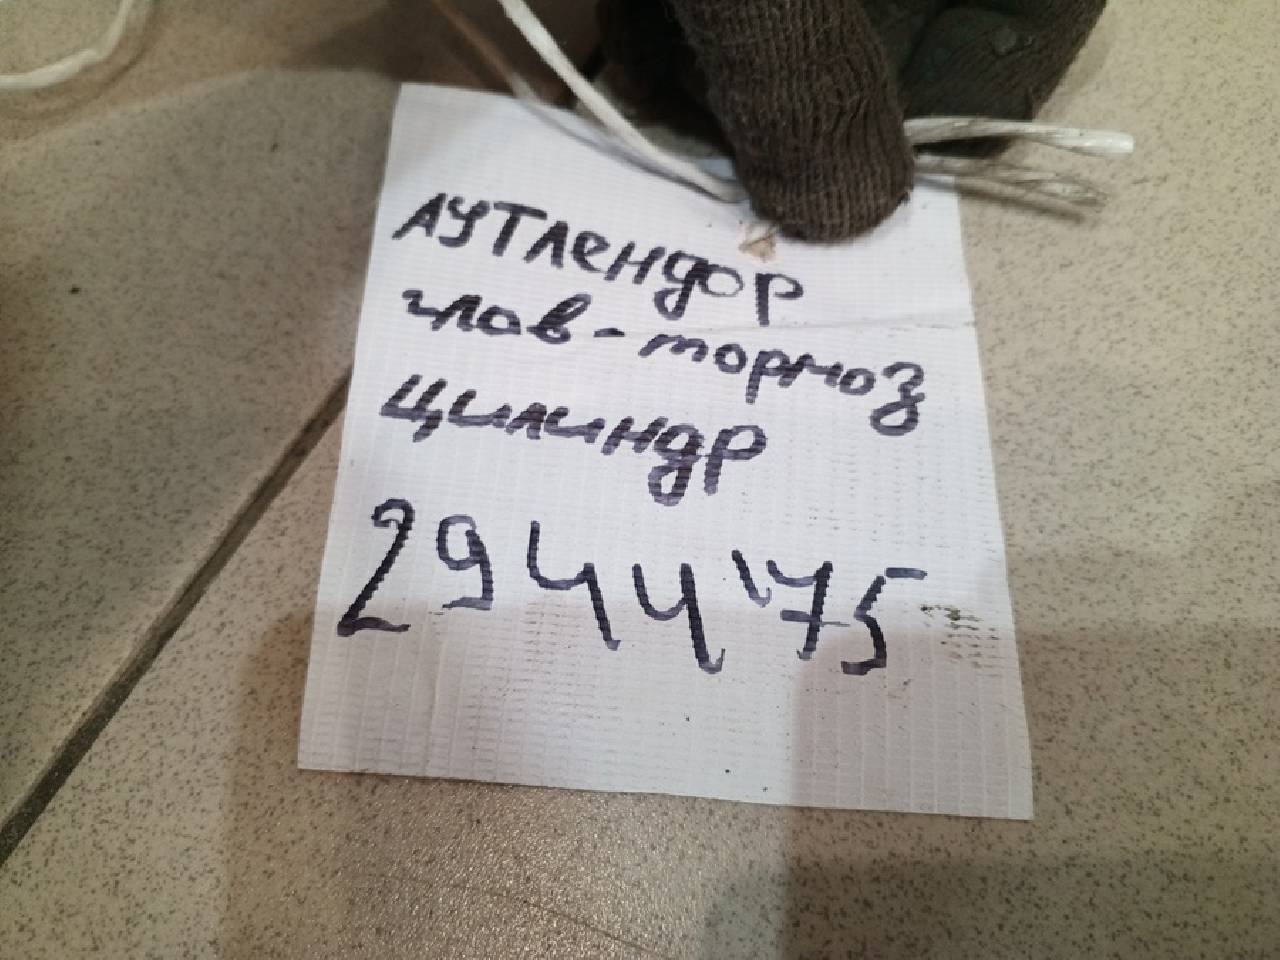 Аутлендор
глав-тормоз
цилиндр
2944175